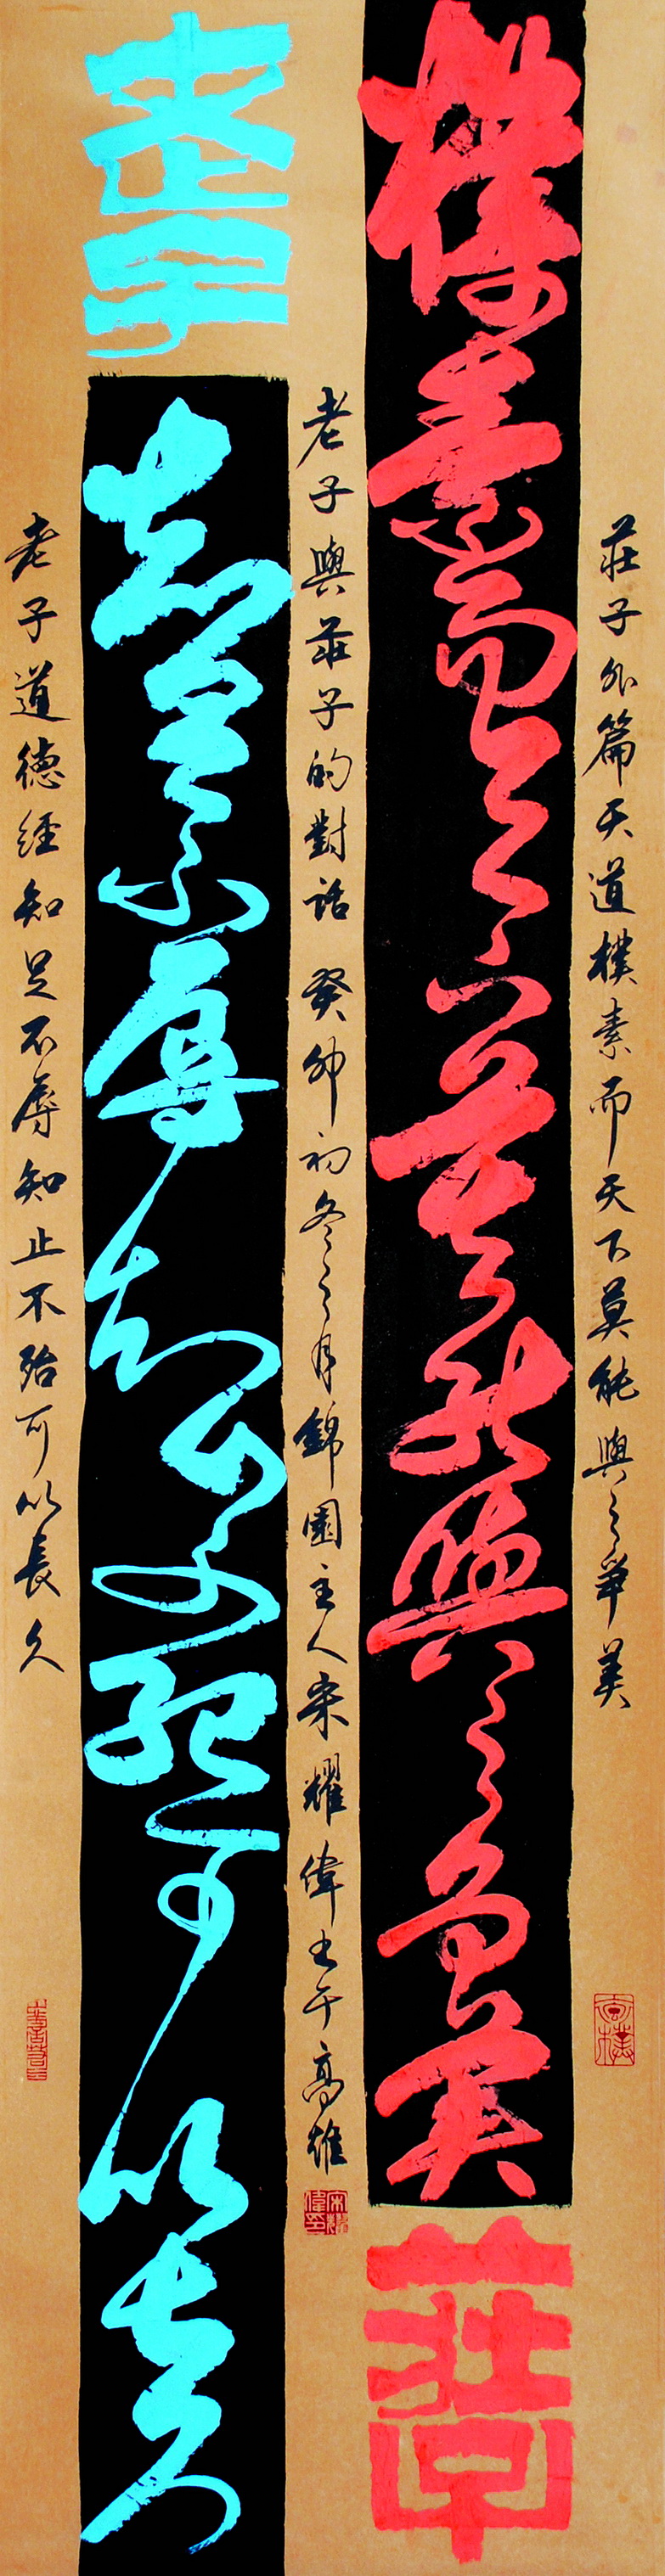 莊子外篇天道樸素而天下莫能與之爭美
樸素而天下莫能與之爭美
莊子
老子與莊子的對話 癸卯初冬之月錦園主人宋耀偉書於高雄
老子
知足不辱知止不殆可以長久
老子道德經知足不辱知止不殆可以長久